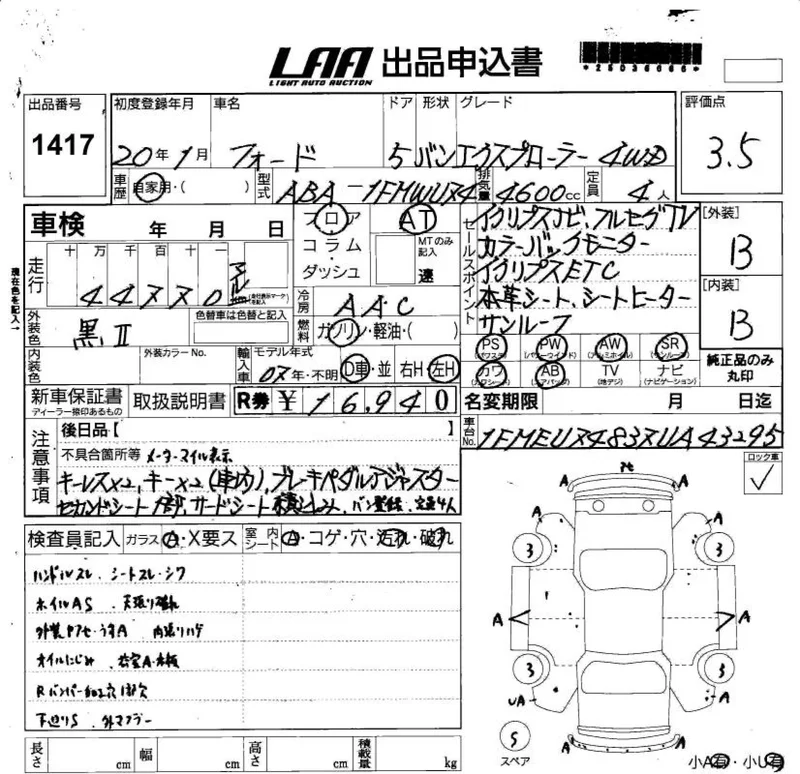 LAA 出品申込書
LIGHT AUTO AUCTION
*25036665*
出品番号
1417
初度登録年月
20年1月
車名
フォード
ドア
5
形状
バン
グレード
エクスプローラー 4WD
評価点
3.5
車歴
自家用・( )
型式
ABA-1FMWU74
排気量
4600cc
定員
4人
車検 年 月 日
フロア・コラム・ダッシュ
AT
MTのみ記入
速
セールスポイント
イクリプスナビ、フルセグTV
カラーバックモニター
イクリプスETC
本革シート、シートヒーター
サンルーフ
[外装]
B
[内装]
B
現在色を記入
走行
十 万 千 百 十 一
44770
マイル
(走行表示マーク を記入)
冷房
A.A.C
燃料
ガソリン・軽油・( )
外装色
黒Ⅱ
色替車は色替と記入
内装色
外装カラーNo.
輸入車
モデル年式
07年・不明
D車・並
右H・左H
PS (パワステ)
PW (パワーウインド)
AW (アルミホイル)
SR (サンルーフ)
カワ (カワシート)
AB (エアバッグ)
TV (地デジ)
ナビ (ナビゲーション)
純正品のみ丸印
新車保証書
ディーラー捺印あるもの
取扱説明書
R券 ¥16,940
名変期限 月 日迄
車台No.
1FMEU74837UA43295
注意事項
後日品【 】
不具合箇所等 メーターマイル表示
キーレス×2、キー×2(車内)、ブレーキペダルアジャスター
セカンドシート1部、サードシート積込み、バン登録、定員4人
ロック車
✓
検査員記入
ガラス A・X要ス
室内シート A・コゲ・穴・汚れ・破れ
ハンドルスレ、シートスレ・シワ
ホイルAS、天張り破れ
外装ヤケセ・うすA 内張りハゲ
オイルにじみ
Rバンパー加工穴1部欠
下廻りS、外マフラー
A A
3 3
A A
3 3
UA A
A A
S
スペア
小A有・小U有
長さ cm
幅 cm
高さ cm
積載量 kg